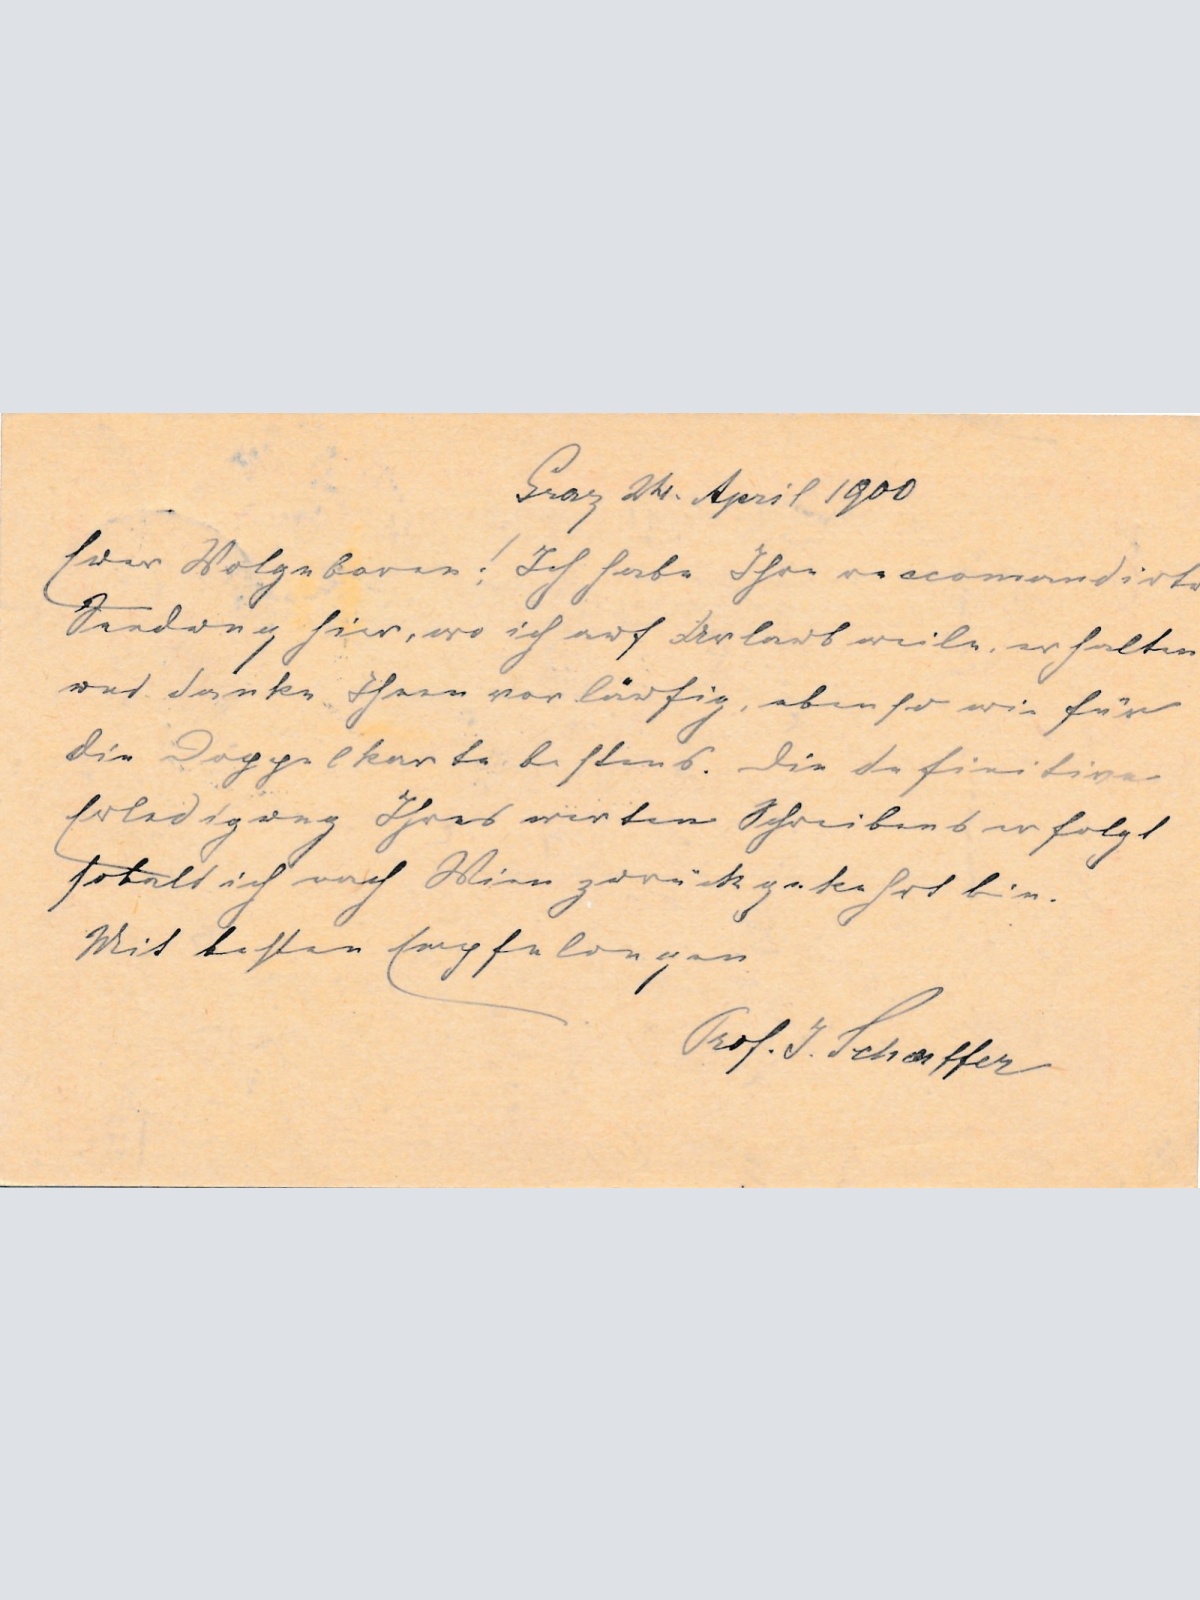 Graz 24. April 1900
Euer Wolgeboren! Ich habe Ihre reccomandirte
Sendung hier, wo ich auf Urlaub weile, erhalten
und danke Ihnen vorläufig, ebenso wie für
die Doppelkarte bestens. Die definitive
Erledigung Ihres werten Schreibens erfolgt
sobald ich nach Wien zurückgekehrt bin.
Mit besten Empfelungen
Prof. J. Schaffer